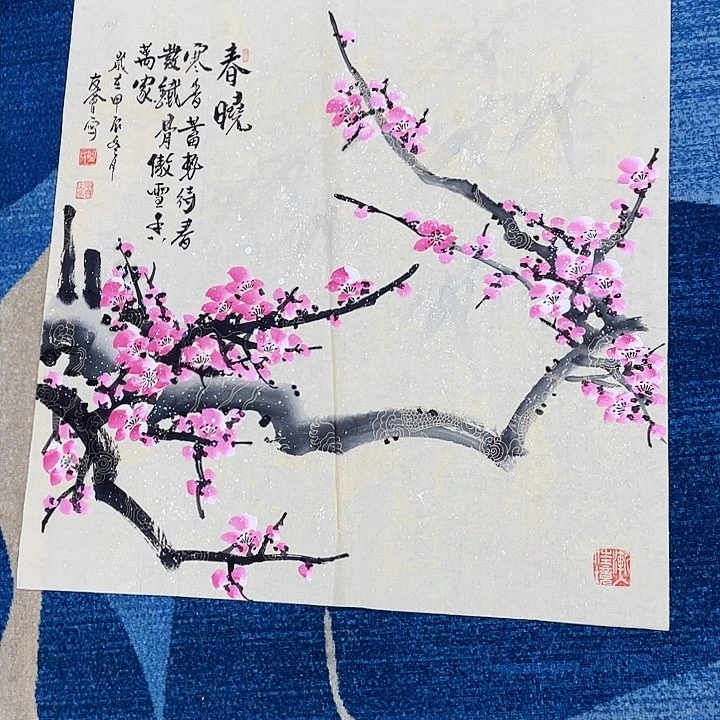 春曉
寒香蓄勢待春
發鐵骨傲雪香
萬家
歲在甲辰冬月
友會寫
漸入佳境